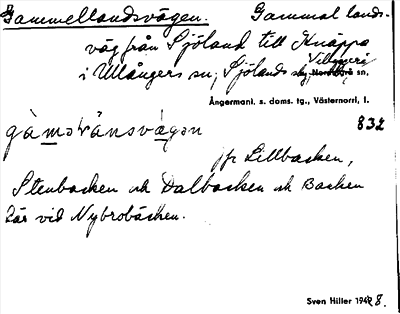 Gammellandsvägen. Gammal lands-
väg från Sjöland till Knäppa
i Ullångers sn, Sjölands by, Nordingrå sn,
Ångermanl. s. doms. tg., Västernorrl. l.
832
jfr Lillbacken,
Stenbacken och Dalbacken och Backen
där vid Nybrobäcken.
Sven Hiller 1948.